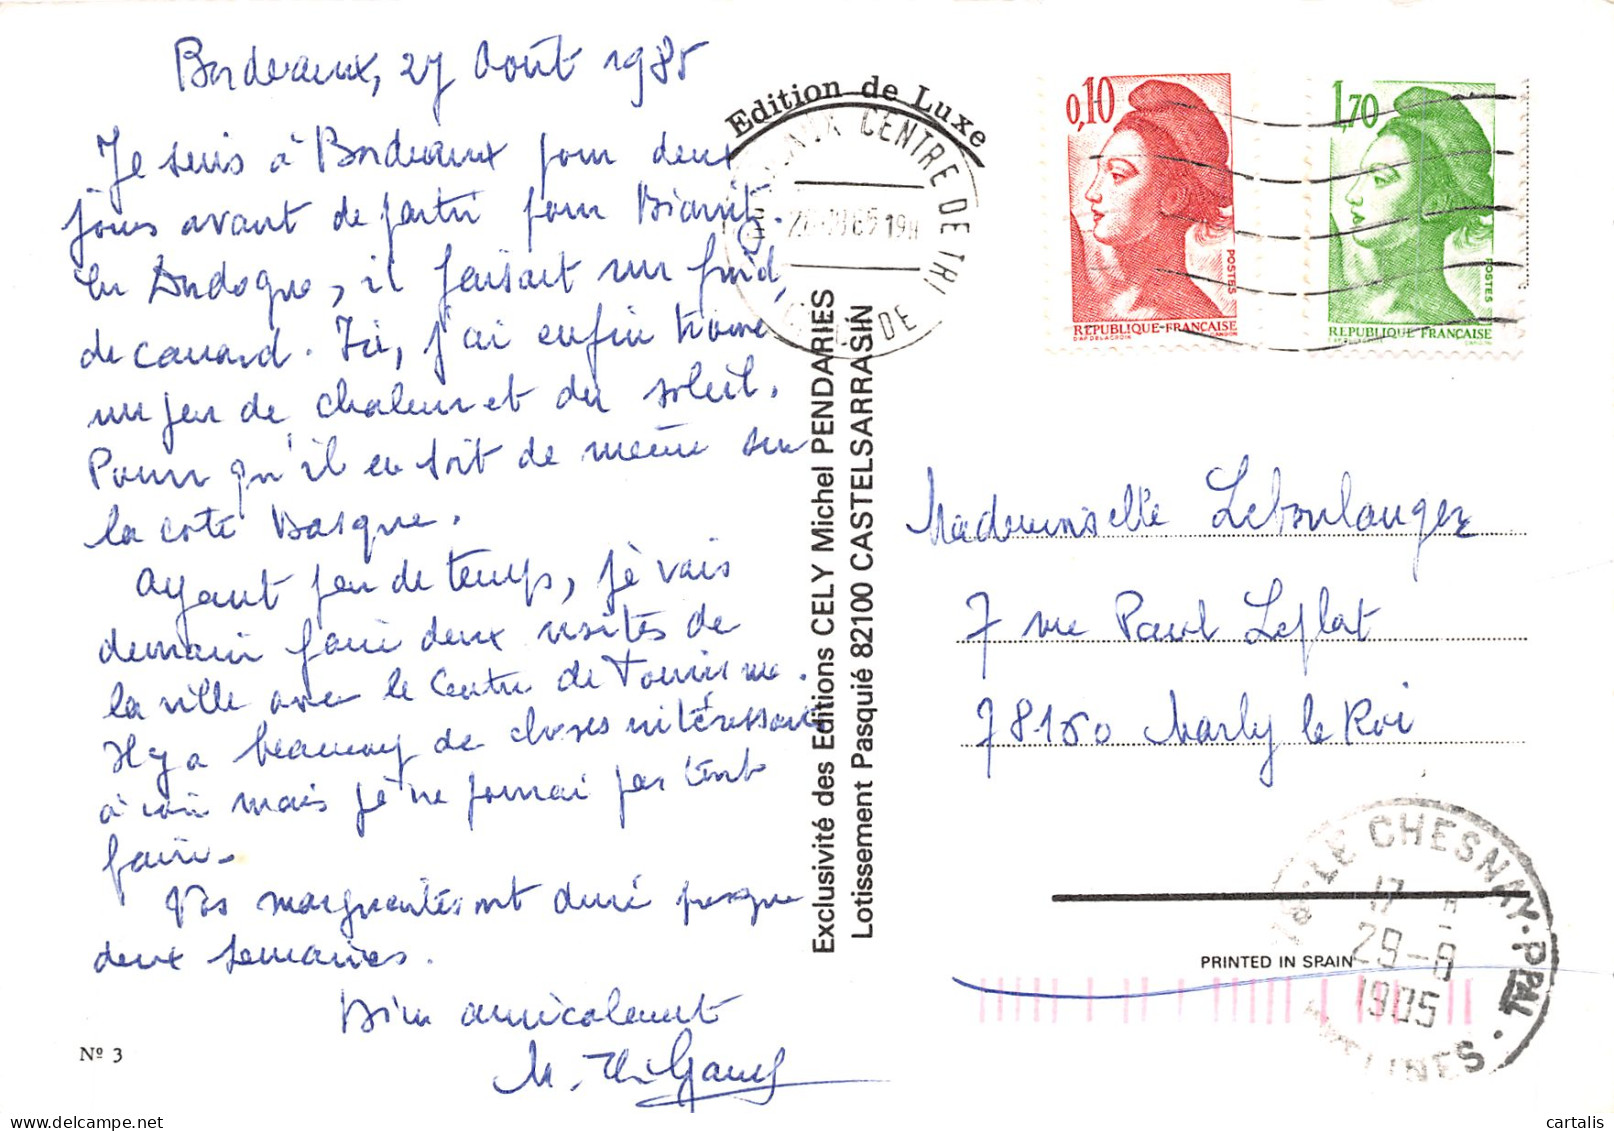 Bordeaux, 27 Août 1985
Je suis à Bordeaux pour deux
jours avant de partir pour Biarritz.
En Dordogne, il faisait un froid
de canard. Ici, j'ai enfin trouvé
un peu de chaleur et du soleil.
Pourvu qu'il en soit de même sur
la côte Basque.
Ayant peu de temps, je vais
demain faire deux visites de
la ville avec le Centre de Tourisme.
Il y a beaucoup de choses intéressantes
à voir mais je ne pourrai pas tout
faire.
Vos marguerites ont duré presque
deux semaines.
Bien amicalement
Nº 3
Edition de Luxe
CENTRE DE TRI
Exclusivité des Editions CELY Michel PENDARIES
Lotissement Pasquié 82100 CASTELSARRASIN
0,10
POSTES
REPUBLIQUE-FRANÇAISE
D'AP. DELACROIX
1,70
POSTES
REPUBLIQUE FRANÇAISE
Mademoiselle Leboulanger
7 rue Paul Leplat
78160 Marly le Roi
78 - LE CHESNAY - PPAL
17 H
29-8
1985
YVELINES
PRINTED IN SPAIN
cartalis
www.delcampe.net